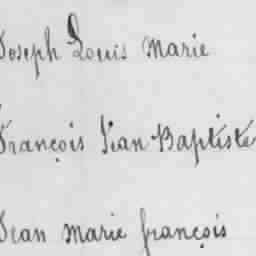 Joseph Louis Marie
François Jean Baptiste
Jean Marie françois